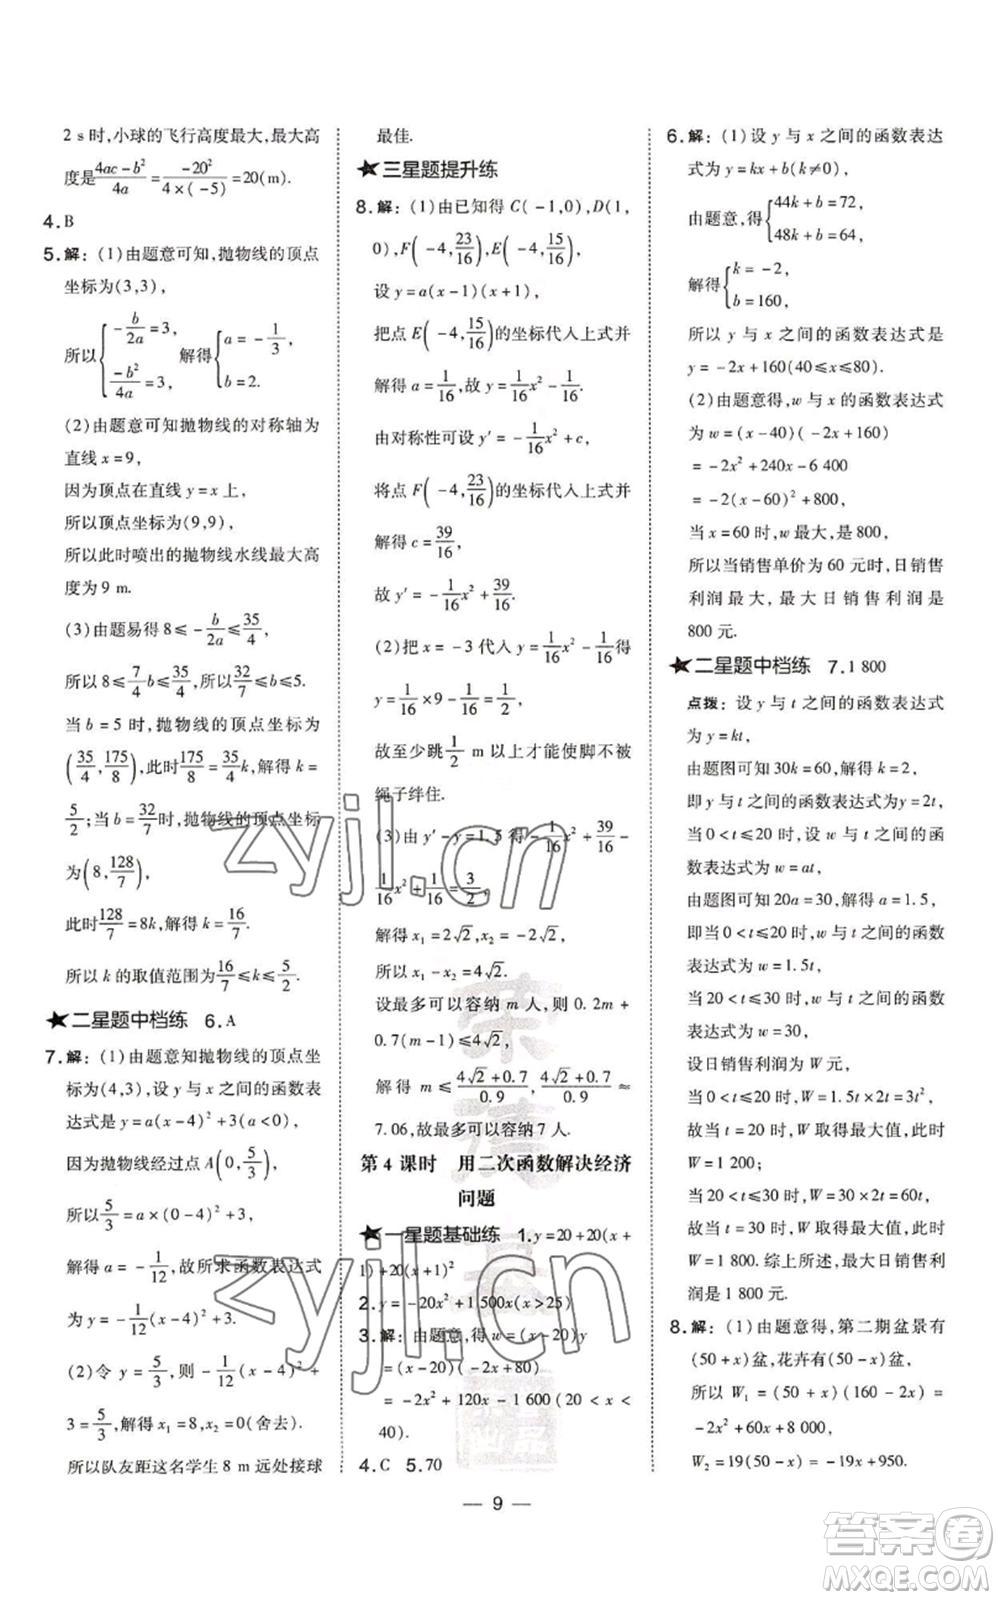 2 s时,小球的飞行高度最大,最大高
度是(4ac-b²)/(4a)=(-20²)/(4×(-5))=20(m).
4.B
5.解:(1)由题意可知,抛物线的顶点
坐标为(3,3),
所以{-b/(2a)=3, (-b²)/(4a)=3, 解得{a=-1/3, b=2.
(2)由题意可知抛物线的对称轴为
直线x=9,
因为顶点在直线y=x上,
所以顶点坐标为(9,9),
所以此时喷出的抛物线水线最大高
度为9 m.
(3)由题易得8≤-b/(2a)≤35/4,
所以8≤7/4 b≤35/4,所以32/7≤b≤5.
当b=5时,抛物线的顶点坐标为
(35/4,175/8),此时175/8=35/4 k,解得k=
5/2;当b=32/7时,抛物线的顶点坐标
为(8,128/7),
此时128/7=8k,解得k=16/7.
所以k的取值范围为16/7≤k≤5/2.
★二星题中档练 6.A
7.解:(1)由题意知抛物线的顶点坐
标为(4,3),设y与x之间的函数表
达式是y=a(x-4)²+3(a<0),
因为抛物线经过点A(0,5/3),
所以5/3=a×(0-4)²+3,
解得a=-1/12,故所求函数表达式
为y=-1/12(x-4)²+3.
(2)令y=5/3,则-1/12(x-4)²+
3=5/3,解得x₁=8,x₂=0(舍去).
所以队友距这名学生8 m远处接球
最佳.
★三星题提升练
8.解:(1)由已知得C(-1,0),D(1,
0),F(-4,23/16),E(-4,15/16),
设y=a(x-1)(x+1),
把点E(-4,15/16)的坐标代入上式并
解得a=1/16,故y=1/16 x²-1/16,
由对称性可设y′=-1/16 x²+c,
将点F(-4,23/16)的坐标代入上式并
解得c=39/16,
故y′=-1/16 x²+39/16.
(2)把x=-3代入y=1/16 x²-1/16得
y=1/16×9-1/16=1/2,
故至少跳1/2 m以上才能使脚不被
绳子绊住.
(3)由y′-y=1.5得-1/16 x²+39/16-
1/16 x²+1/16=3/2,
解得x₁=2√2,x₂=-2√2,
所以x₁-x₂=4√2.
设最多可以容纳m人,则0.2m+
0.7(m-1)≤4√2,
解得m≤(4√2+0.7)/0.9,(4√2+0.7)/0.9≈
7.06,故最多可以容纳7人.
第4课时 用二次函数解决经济
问题
★一星题基础练 1.y=20+20(x+
1)+20(x+1)²
2.y=-20x²+1 500x(x>25)
3.解:由题意,得w=(x-20)y
=(x-20)(-2x+80)
=-2x²+120x-1 600(20<x<
40).
4.C 5.70
6.解:(1)设y与x之间的函数表达
式为y=kx+b(k≠0),
由题意,得{44k+b=72, 48k+b=64,
解得{k=-2, b=160,
所以y与x之间的函数表达式是
y=-2x+160(40≤x≤80).
(2)由题意得,w与x的函数表达式
为w=(x-40)(-2x+160)
=-2x²+240x-6 400
=-2(x-60)²+800,
当x=60时,w最大,是800,
所以当销售单价为60元时,日销售
利润最大,最大日销售利润是
800元.
★二星题中档练 7.1 800
点拨:设y与t之间的函数表达式
为y=kt,
由题图可知30k=60,解得k=2,
即y与t之间的函数表达式为y=2t,
当0<t≤20时,设w与t之间的函
数表达式为w=at,
由题图可知20a=30,解得a=1.5,
即当0<t≤20时,w与t之间的函数
表达式为w=1.5t,
当20<t≤30时,w与t之间的函数
表达式为w=30,
设日销售利润为W元,
当0<t≤20时,W=1.5t×2t=3t²,
故当t=20时,W取得最大值,此时
W=1 200;
当20<t≤30时,W=30×2t=60t,
故当t=30时,W取得最大值,此时
W=1 800.综上所述,最大日销售利
润是1 800元.
8.解:(1)由题意得,第二期盆景有
(50+x)盆,花卉有(50-x)盆,
所以W₁=(50+x)(160-2x)=
-2x²+60x+8 000,
W₂=19(50-x)=-19x+950.
— 9 —
zyjl.cn
zyjl.cn
答案圈
MXQE.COM